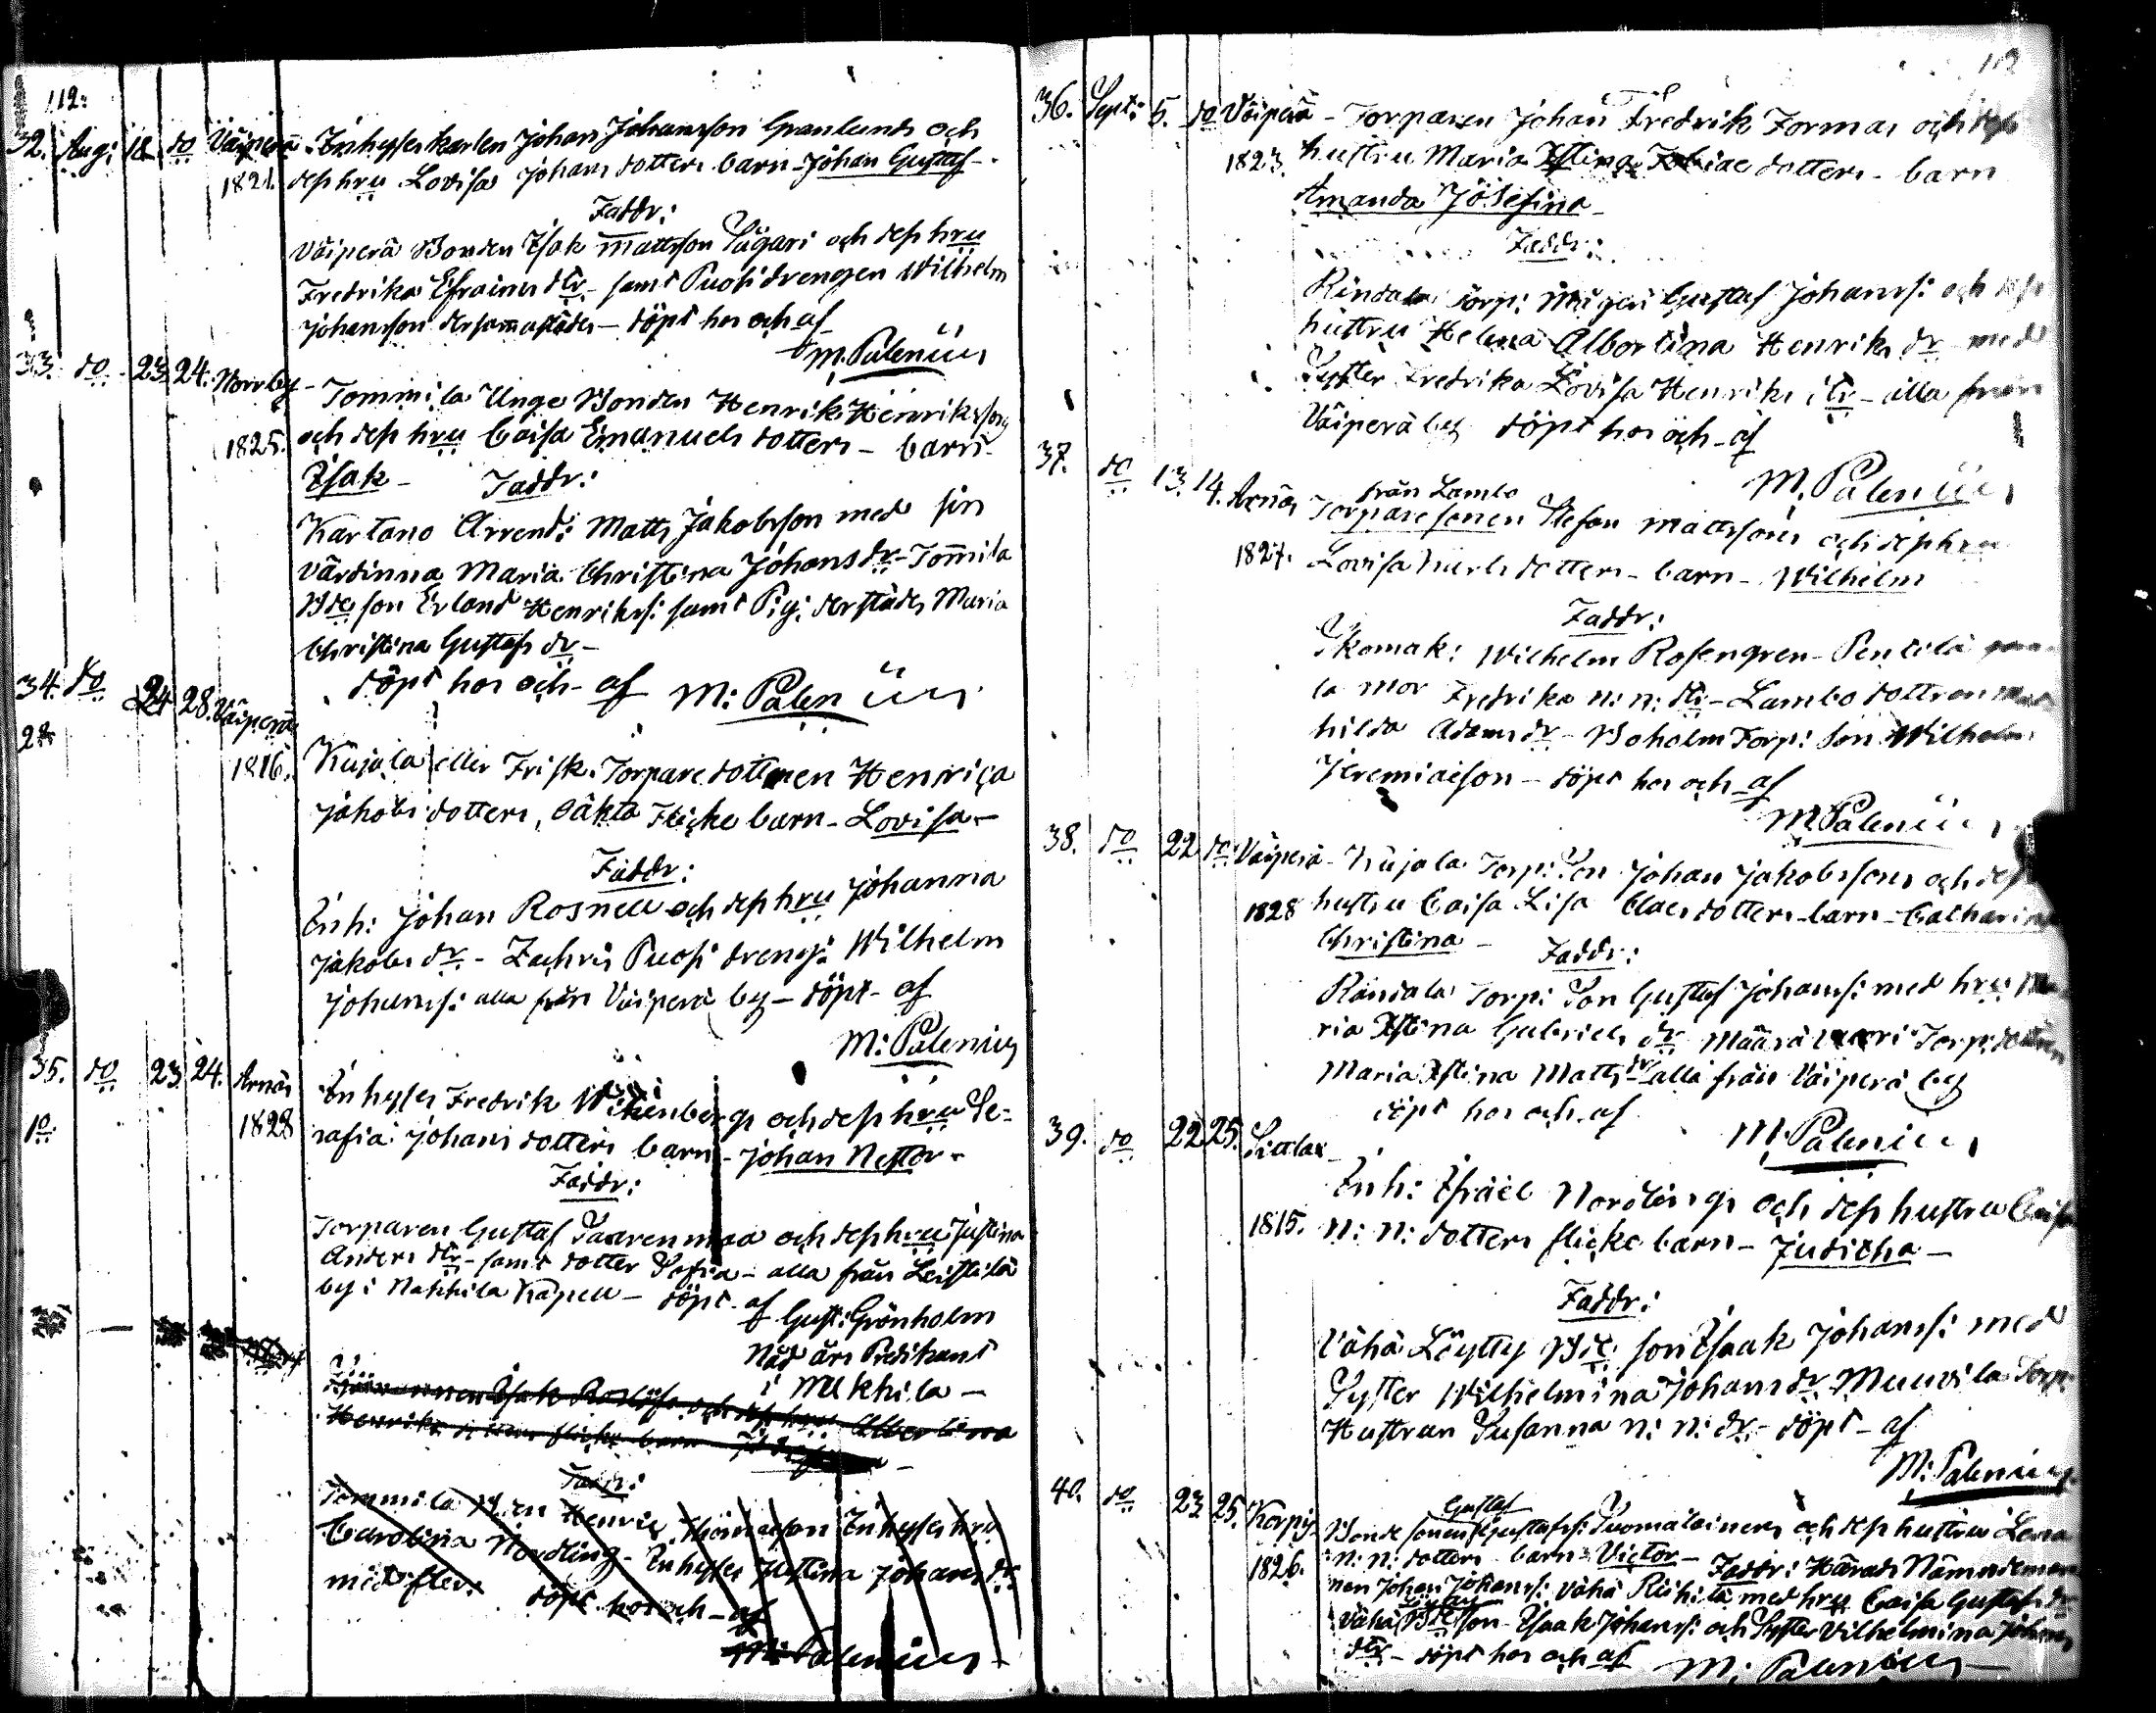 112.
32. Aug: 18. do Väiperä Inhyses karlen Johan Johansson Granlunds och
1821. dess hru Lovisa Johans dotters barn - Johan Gustaf -
Faddr:
Väiperä Bonden Isak Mattsson Sägari och dess hru
Fredrika Efraims dtr - samt Puosi drengen Wilhelm
Johansson dersammastädes - döpt hos och af
M. Palenius
33. do 23. 24. Norrby - Tommila Unge Bonden Henrik Henriksson
1825. och dess hru Caisa Emanuels dotters - barn
Isak - Faddr:
Kartano Arrend: Matts Jakobsson med sin
värdinna Maria Christina Johans dr - Tommila
Bde son Erland Henrikss: samt Pig: derstädes Maria
Christina Gustafs dr -
döpt hos och - af M: Palenius
34. do 24 28. Väiperä
2
1816. Kujala eller Frisk. Torpare dottren Henrica
Jakobs dotters, oäkta Flicke barn - Lovisa -
Faddr:
Inh: Johan Rosnell och dess hru Johanna
Jakobs dr - Zachris Puosi dreng: Wilhelm
Johanss: alla från Väiperä by - döpt - af
M: Palenius
35. do 23. 24. Arnäs Inhyses Fredrik Wikenberg och dess hru Se=
1o 1828 rafia Johans dotters barn - Johan Nestor -
Faddr:
Torparen Gustaf Saarenmaa och dess hru Justina
Anders dtr - samt dotter Sofia - alla från Leistilä
by i Nakkila Kapell - döpt - af Gust: Grönholm
Nåd års Predikant
i Nakkila -
Isak och dess hru Albertina
Henriks flicke barn
Faddr:
Tommila Henric Thomasson Inhyses hru
Carolina Nordling - Inhyses Justina Johans dr
med fler: döpt hos och - af
M: Palenius
112
36. Sept: 5. do Väiperä - Torparen Johan Fredrik Formas och dess
1823. hustru Maria Xstina Tobiae dotters - barn
Amanda Josefina -
Faddr:
Rindala Torp: Gustaf Johanss: och dess
hustru Helena Albertina Henriks dr med
Syster Fredrika Lovisa Henriks dtr - alla från
Väiperä by döpt hos och - af
M. Palenius
37. do 13. 14. Arnäs från Lambo
Torparesonen Stefan Mattssons och dess hru
1827. Lovisa dotters - barn - Wilhelm
Faddr:
Skomak: Wilhelm Rosengren - Pentilä
la mor Fredrika n: n: dtr - Lambo dottren Mat
hilda Adams dr - Boholm Torp: Son Wilhelm
Jeremiaeson - döpt hos och - af
M. Palenius
38. do 22 do Väiperä - Kujala Torp: Son Johan Jakobssons och dess
1828 hustru Caisa Lisa Claes dotters - barn - Catharina
Christina - Faddr:
Rändala Torp: Son Gustaf Johanss: med hru Ma
ria Xstina Gabriels dr Määrävuori Torp: dottren
Maria Xstina Matts dr alla från Väiperä by
döpt hos och - af
M: Palenius
39. do 22 25. Sittlax -
Inh: Israel Nordling och dess hustru Caisa
1815. n: n: dotters flicke barn - Juditha -
Faddr:
Vähä Löytty Bde son Isaak Johanss: med
Syster Wilhelmina Johans dr - Muuvila Torp:
Hustrun Susanna n: n: dr - döpt - af
M: Palenius
40. do 23 25. Korpi Gustaf
Bonde sonen Gustafss: Suomalainens och dess hustru Lena
1826. n: n: dotters - barn - Victor - Faddr: Härads Nämndeman
nen Johan Johanss: Vähä Riihilä med hru Caisa Gustafs dr
Vähä Bde son - Isaak Johanss: och Syster Vilhelmina Johans
dtr - döpt hos och af M: Palenius